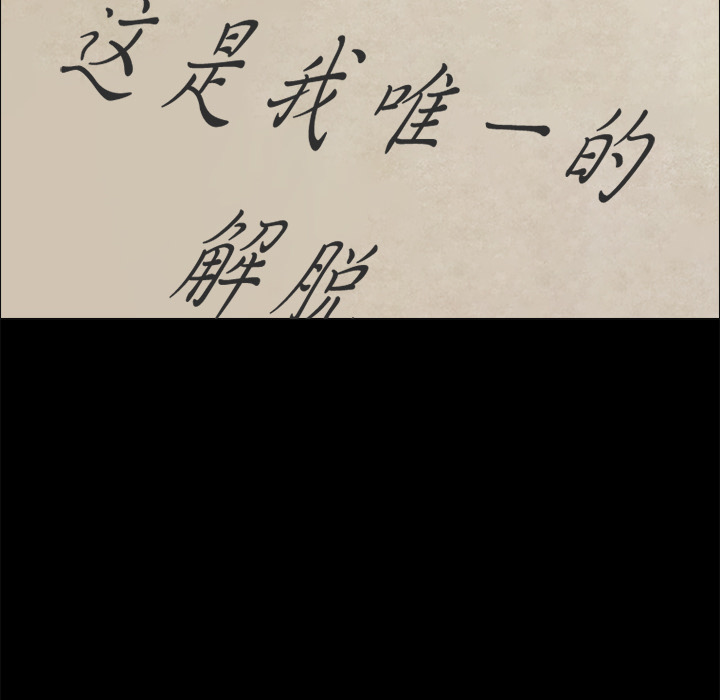 这是我唯一的
解脱